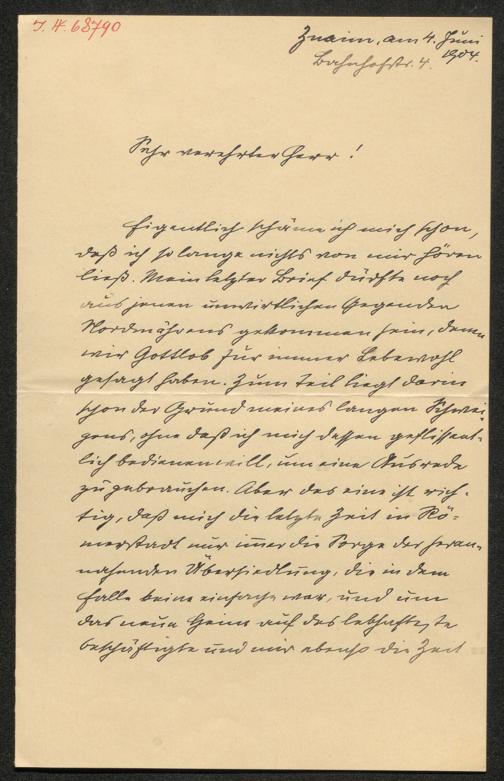 J. N. 68790
Znaim, am 4. Juni
1904.
Bahnhofstr. 4.
Sehr verehrter Herr!
Eigentlich schäme ich mich schon,
daß ich so lange nichts von mir hören
ließ. Mein letzter Brief dürfte noch
aus jenen unwirtlichen Gegenden
Nordmährens gekommen sein, denen
wir Gottlob für immer Lebewohl
gesagt haben. Zum Teil liegt darin
schon der Grund meines langen Schwei-
gens, ohne daß ich mich dessen geflissent-
lich bedienen will, um eine Ausrede
zu gebrauchen. Aber das eine ist rich-
tig, daß mich die letzte Zeit in Rö-
merstadt nur immer die Sorge der heran-
nahenden Übersiedlung, die in dem
Falle keine einfache war, und um
das neue Heim auf das lebhafteste
beschäftigte und mir ebenso die Zeit